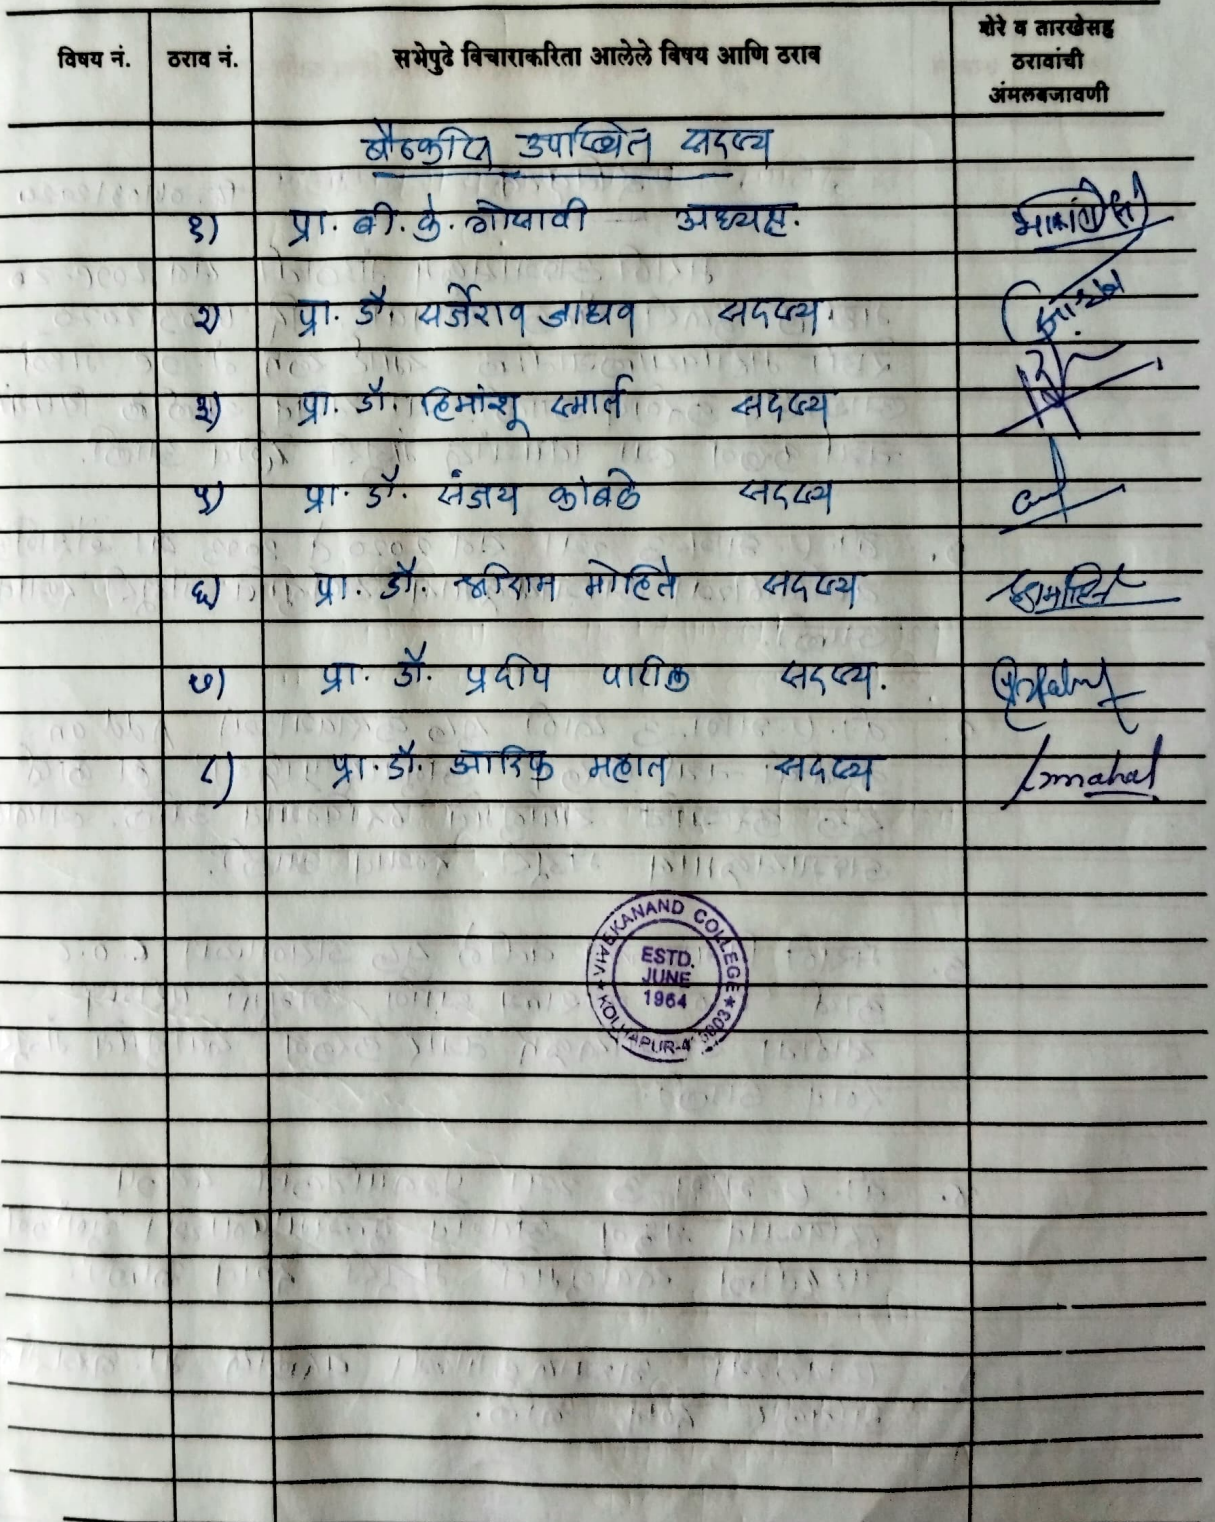 विषय नं. ठराव नं. सभेपुढे विचाराकरिता आलेले विषय आणि ठराव शेरे व तारखेसह
ठरावांची
अंमलबजावणी
बैठकीस उपस्थित सदस्य
१) प्रा. बी. के. गोसावी अध्यक्ष.
२) प्रा. डॉ. सर्जेराव जाधव सदस्य.
३) प्रा. डॉ. हिमांशू स्मार्त सदस्य
५) प्रा. डॉ. संजय कांबळे सदस्य
६) प्रा. डॉ. श्रीराम मोहिते सदस्य
७) प्रा. डॉ. प्रदीप पाटील सदस्य.
८) प्रा. डॉ. आरिफ महात सदस्य
VIVEKANAND COLLEGE
ESTD.
JUNE
1964